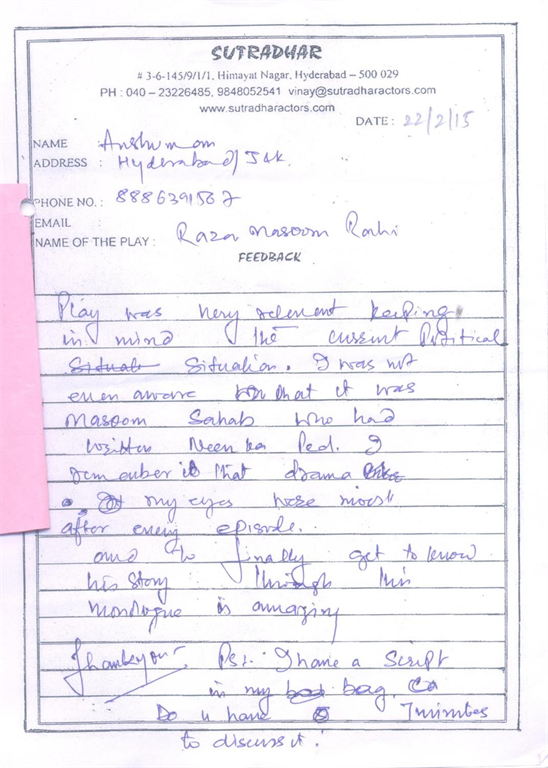 SUTRADHAR
# 3-6-145/9/1/1, Himayat Nagar, Hyderabad – 500 029
PH : 040 – 23226485, 9848052541 vinay@sutradharactors.com
www.sutradharactors.com
DATE : 22/2/15
NAME : Anshuman
ADDRESS : Hyderabad/J&K.
PHONE NO. : 8886391567
EMAIL :
NAME OF THE PLAY : Raza Masoom Rahi
FEEDBACK
Play was very relevent keeping
in mind the current Political
Situation. I was not
even aware that it was
Masoom Sahab who had
written Neem ka Ped. I
remember that drama
my eyes were moist
after every episode.
and to finally get to know
his story through this
monologue is amazing
Thankyou
Ps:- I have a script
in my bag.
Do u have 7 minutes
to discuss it.